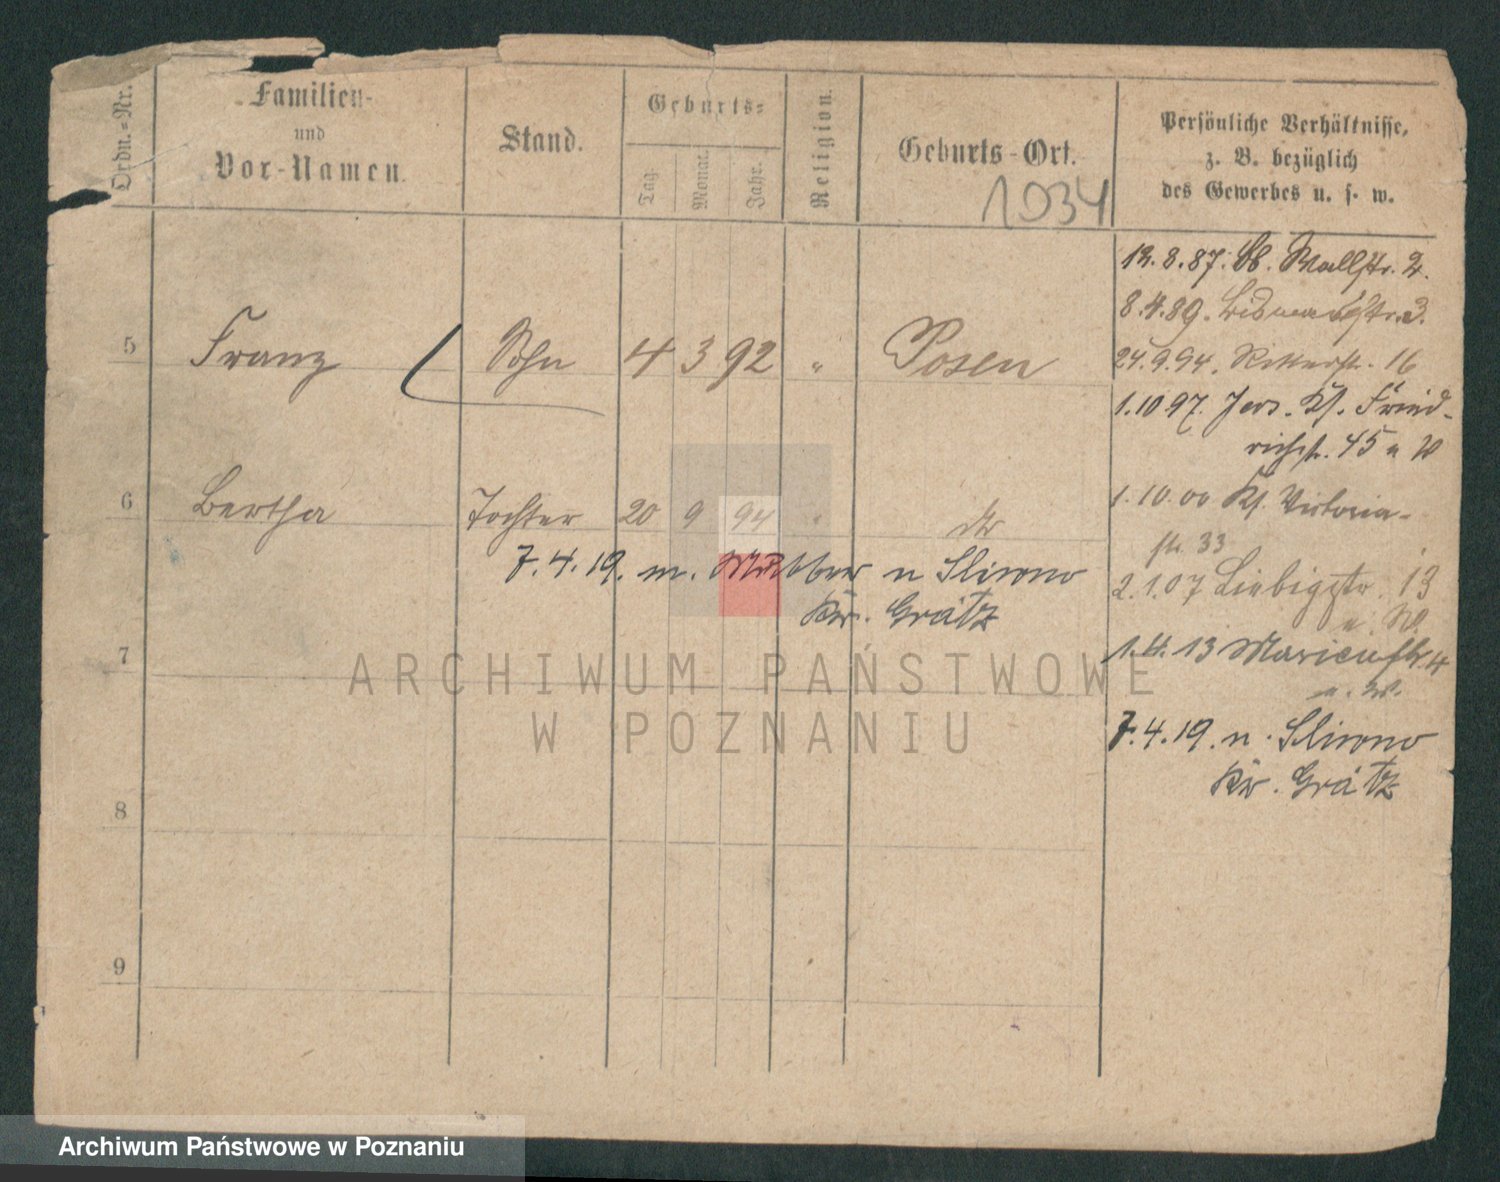 Ordn.-Nr.
Familien-
und
Vor-Namen.
Stand.
Geburts-
Tag.
Monat.
Jahr.
Religion.
Geburts-Ort.
1034
Persönliche Verhältnisse,
z. B. bezüglich
des Gewerbes u. s. w.
12.8.87. Wallstr. 2.
8.4.89. Bismarckstr. 3.
24.9.94. Ritterstr. 16
1.10 97. Jers. Fried-
richstr. 45 u W
1.10.00 Victoria-
str. 33
2.1.07 Liebigstr. 13
u. W.
1.4.13 Marienstr. 4
u. W.
7.4.19. n. Sliwno
Kr. Grätz
5 Franz Sohn 4 3 92 " Posen
6 Bertha Tochter 20 9 94 " dto
7.4.19. m. Mutter n Sliwno
Kr. Grätz
7
8
9
ARCHIWUM PAŃSTWOWE
W POZNANIU
Archiwum Państwowe w Poznaniu